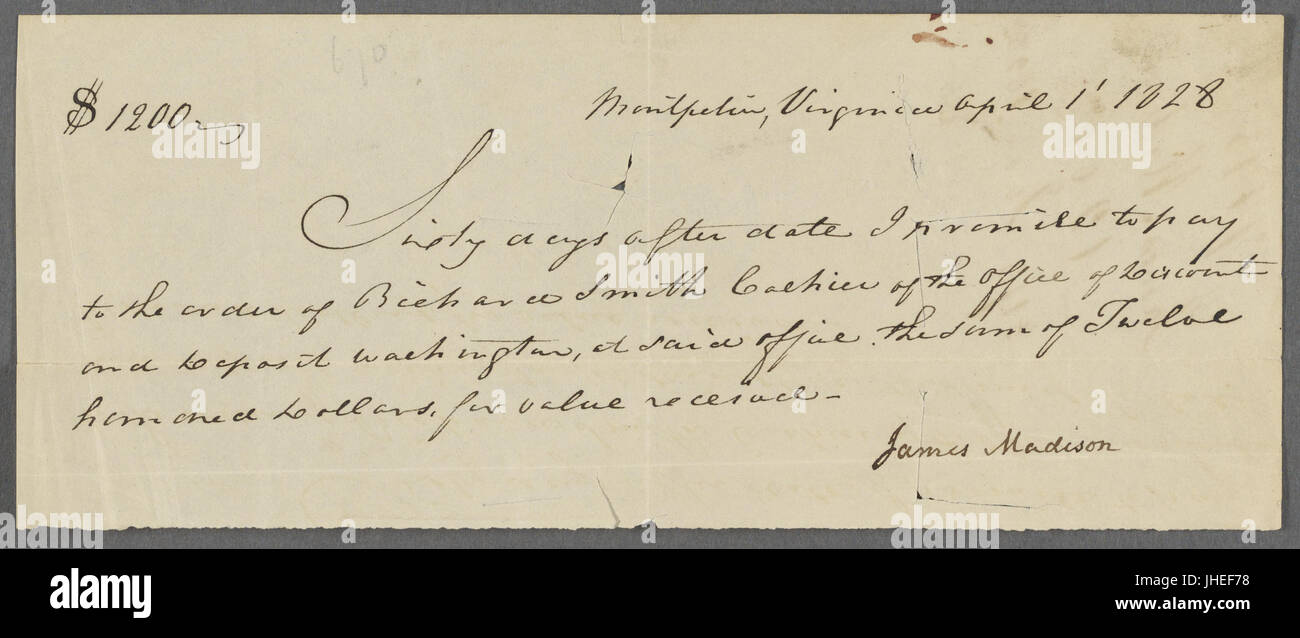 $ 1200
Montpelier, Virginia April 1' 1828
Sixty days after date I promise to pay
to the order of Richard Smith Cashier of the office of Discount
and Deposit Washington, at said office the sum of Twelve
hundred Dollars, for value received -
James Madison
alamy stock photo
JHEF78
www.alamy.com